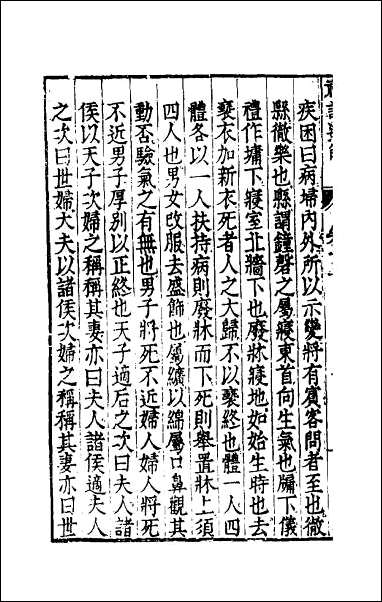 疾困曰病埽內外所以示變將有賓客問者至也徹
縣徹樂也縣謂鐘磬之屬寢東首向生氣也牖下儀
禮作墉下寢室北牆下也廢牀寢地如始生時也去
褻衣加新衣死者人之大歸不以褻終也體一人四
體各以一人扶持病則廢牀而下死則舉置牀上須
四人也男女改服去盛飾也屬纊以綿屬口鼻觀其
動否驗氣之有無也男子將死不近婦人婦人將死
不近男子厚別以正終也天子適后之次曰夫人諸
侯以天子次婦之稱稱其妻亦曰夫人諸侯適夫人
之次曰世婦大夫以諸侯次婦之稱稱其妻亦曰世